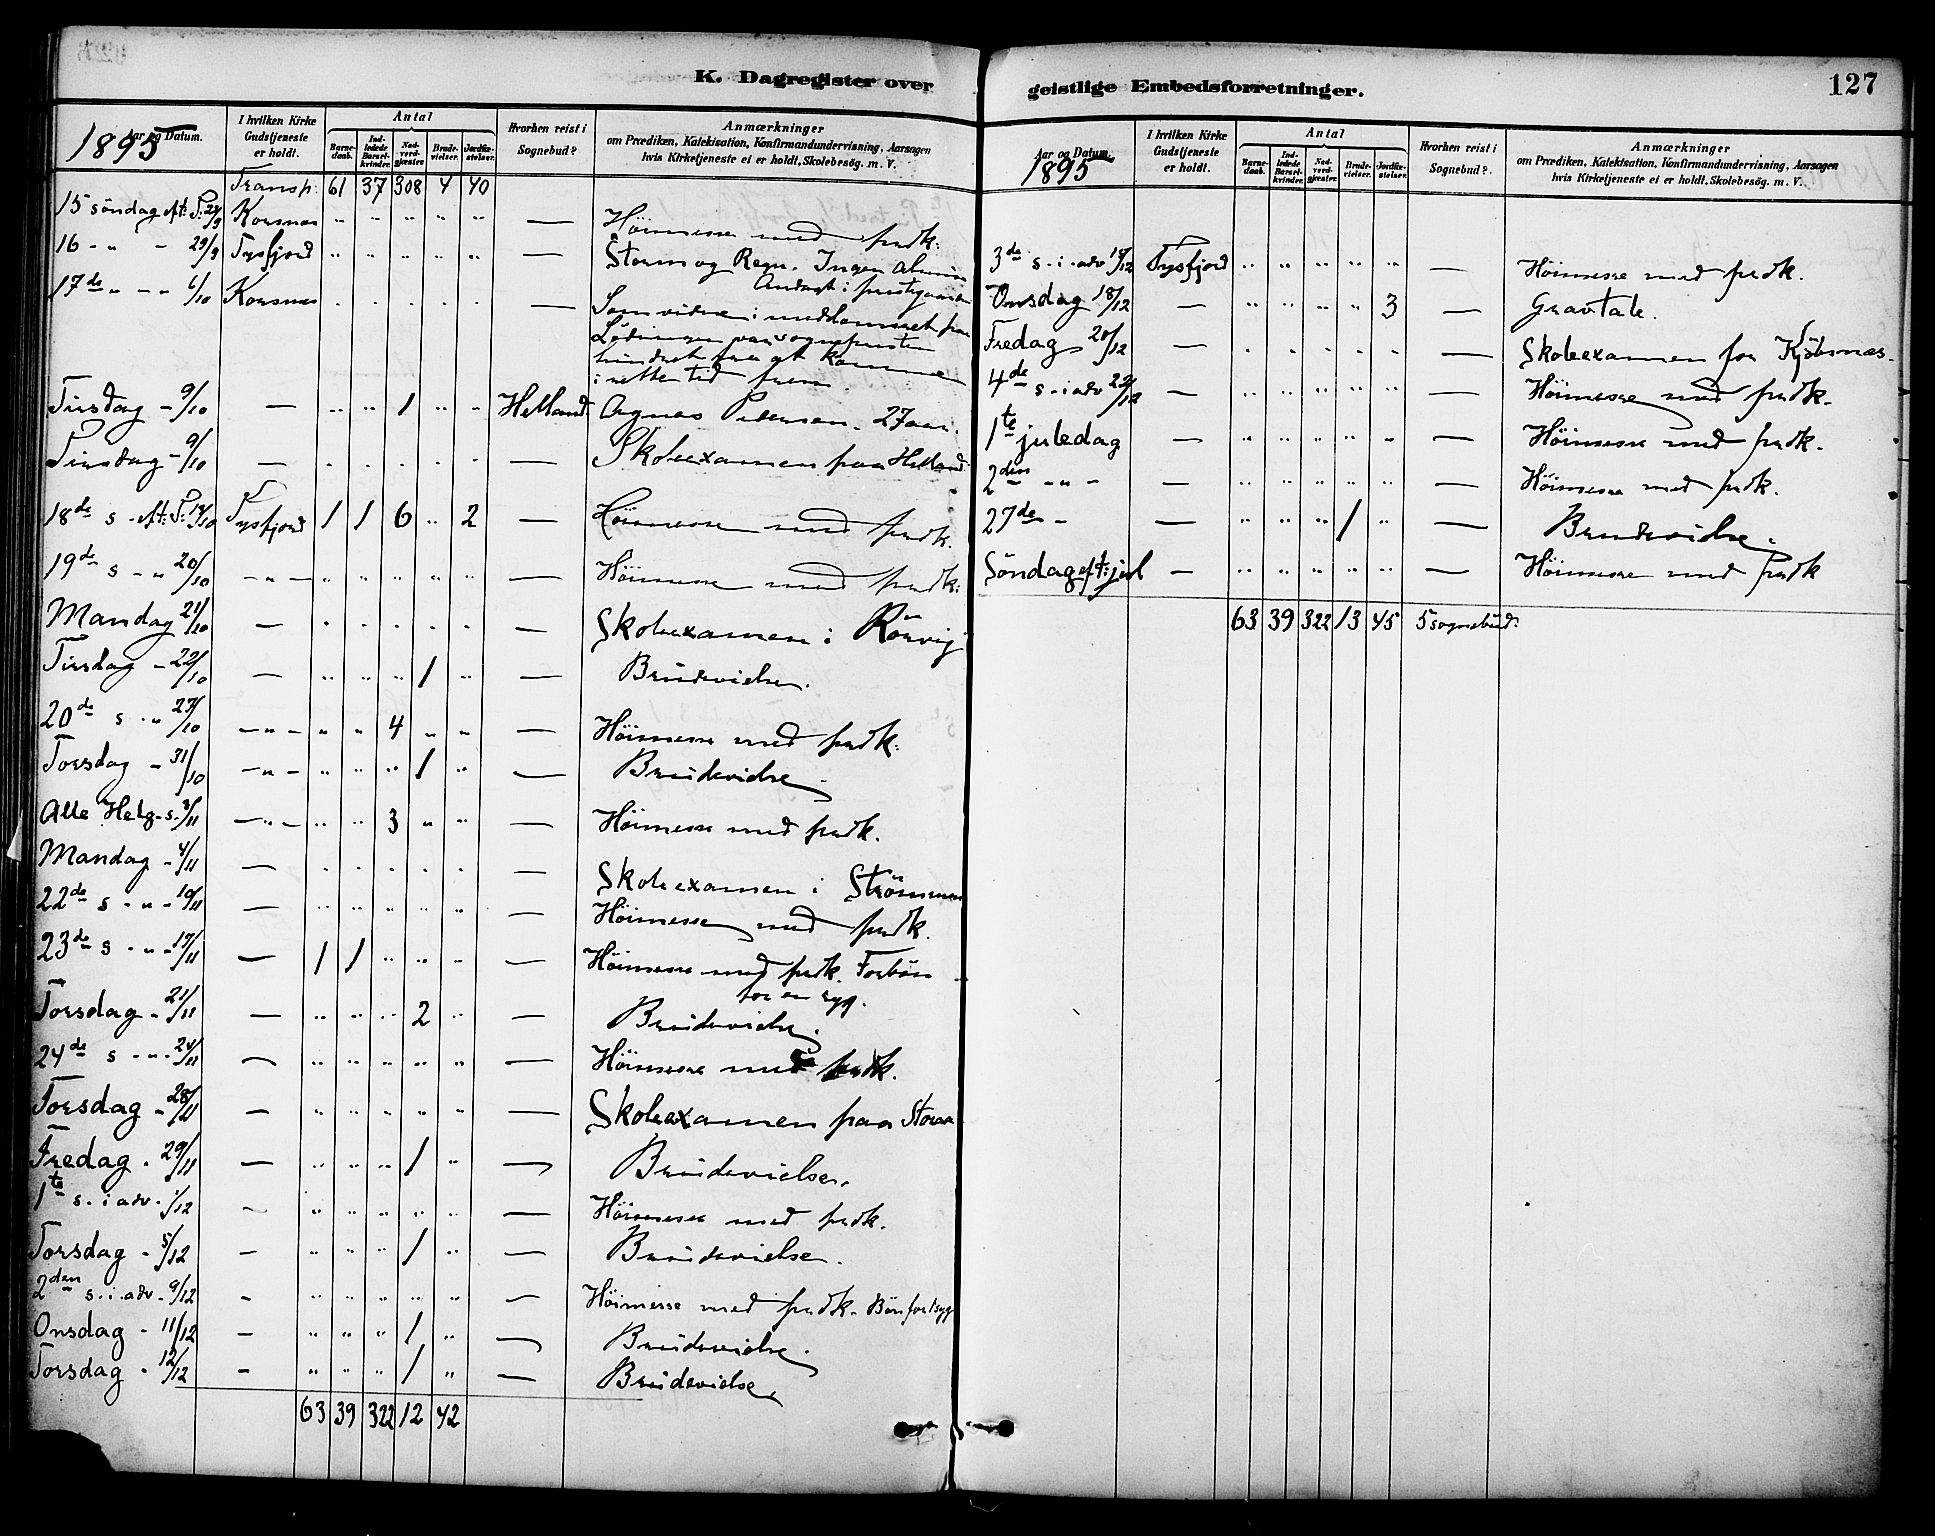 K. Dagregister over
Aar og Datum. 1895
I hvilken Kirke Gudstjeneste er holdt.
Antal
Barnedaab.
Indledede Barselkvinder.
Nadverdgjæster.
Brudevielser.
Jordfæstelser.
Hvorhen reist i Sognebud?
Anmærkninger
om Prædiken, Katekisation, Konfirmandundervisning, Aarsagen
hvis Kirketjeneste ei er holdt, Skolebesøg. m. V.
Transp: 61 37 308 4 40
15 söndag eft: P: Korsnæs " " " " " — Höimesse med prædk:
16 - " - 29/9 Tysfjord " " " " " — Storm og Regn. Ingen almue
Andagt i prestegaarden
17de " - - 6/10 Korsnæs " " " " " — Som vidne i meddomsret paa
Lödingen var sognepresten
hindret fra at komme
i rette tid frem.
Tirsdag - 9/10 — " " 1 " " Helland Agnas Petersen. 27 aar.
Tirsdag - 9/10 — " " " " " — Skoleexamen paa Helland
18de s - eft: P: Tysfjord 1 1 6 " 2 — Höimesse med prædk.
19de s - " 20/10 - " - " " " " " — Höimesse med prædk:
Mandag 21/10 — " " " " " — Skoleexamen i Rörvig
Tirsdag - 22/10 — " " " 1 " — Brudevielse.
20de s - " 27/10 - " - " " 4 " " Höimesse med prædk:
Torsdag - 31/10 - " - " " " 1 " — Brudevielse
Alle Helg - s - 3/11 - " - " " 3 " " — Höimesse med prædk.
Mandag - 4/11 — " " " " " — Skoleexamen i Strömmen
22de s - " - 10/11 — " " " " " — Höimesse med prædk.
23de s - " - 17/11 — 1 1 " " " — Höimesse med prædk. Forbön
for en syg.
Torsdag - 21/11 — " " " 2 " — Brudevielse.
24de s - " - 24/11 — " " " " " — Höimesse med prædk.
Torsdag - 28/11 — " " " " " — Skoleexamen paa Storaa
Fredag - 29/11 — " " " 1 " — Brudevielse.
1te s. i adv - 1/12 — " " " " " — Höimesse med prædk.
Torsdag - 5/12 — " " " 1 " — Brudevielse.
2den s. i. adv - 9/12 — " " " " " — Höimesse med prædk. Bön for 1 syg
Onsdag - 11/12 — " " " 1 " — Brudevielse.
Torsdag - 12/12 — " " " 1 " — Brudevielse,
63 39 322 12 42
geistlige Embedsforretninger.
127
Aar og Datum. 1895
I hvilken Kirke Gudstjeneste er holdt.
Antal
Barnedaab.
Indledede Barselkvinder.
Nadverdgjæster.
Brudevielser.
Jordfæstelser.
Hvorhen reist i Sognebud?
Anmærkninger
om Prædiken, Katekisation, Konfirmandundervisning, Aarsagen
hvis Kirketjeneste ei er holdt, Skolebesøg. m. V.
3de s - i - adv Tysfjord " " " " " — Höimesse med prædk.
Onsdag 18/12 — " " " " 3 — Gravtale.
Fredag 20/12 — " " " " " — Skoleexamen for Kjöbsnæs.
4de s - i adv 22/12 — " " " " " — Höimesse med prædk.
1te juledag — " " " " " — Höimesse med prædk.
2den " - — " " " " " — Höimesse med prædk.
27de - — " " " 1 " — Brudevielse.
Söndag eft: jul — " " " " " — Höimesse med prædk
63 39 322 13 45 5 sognebud.